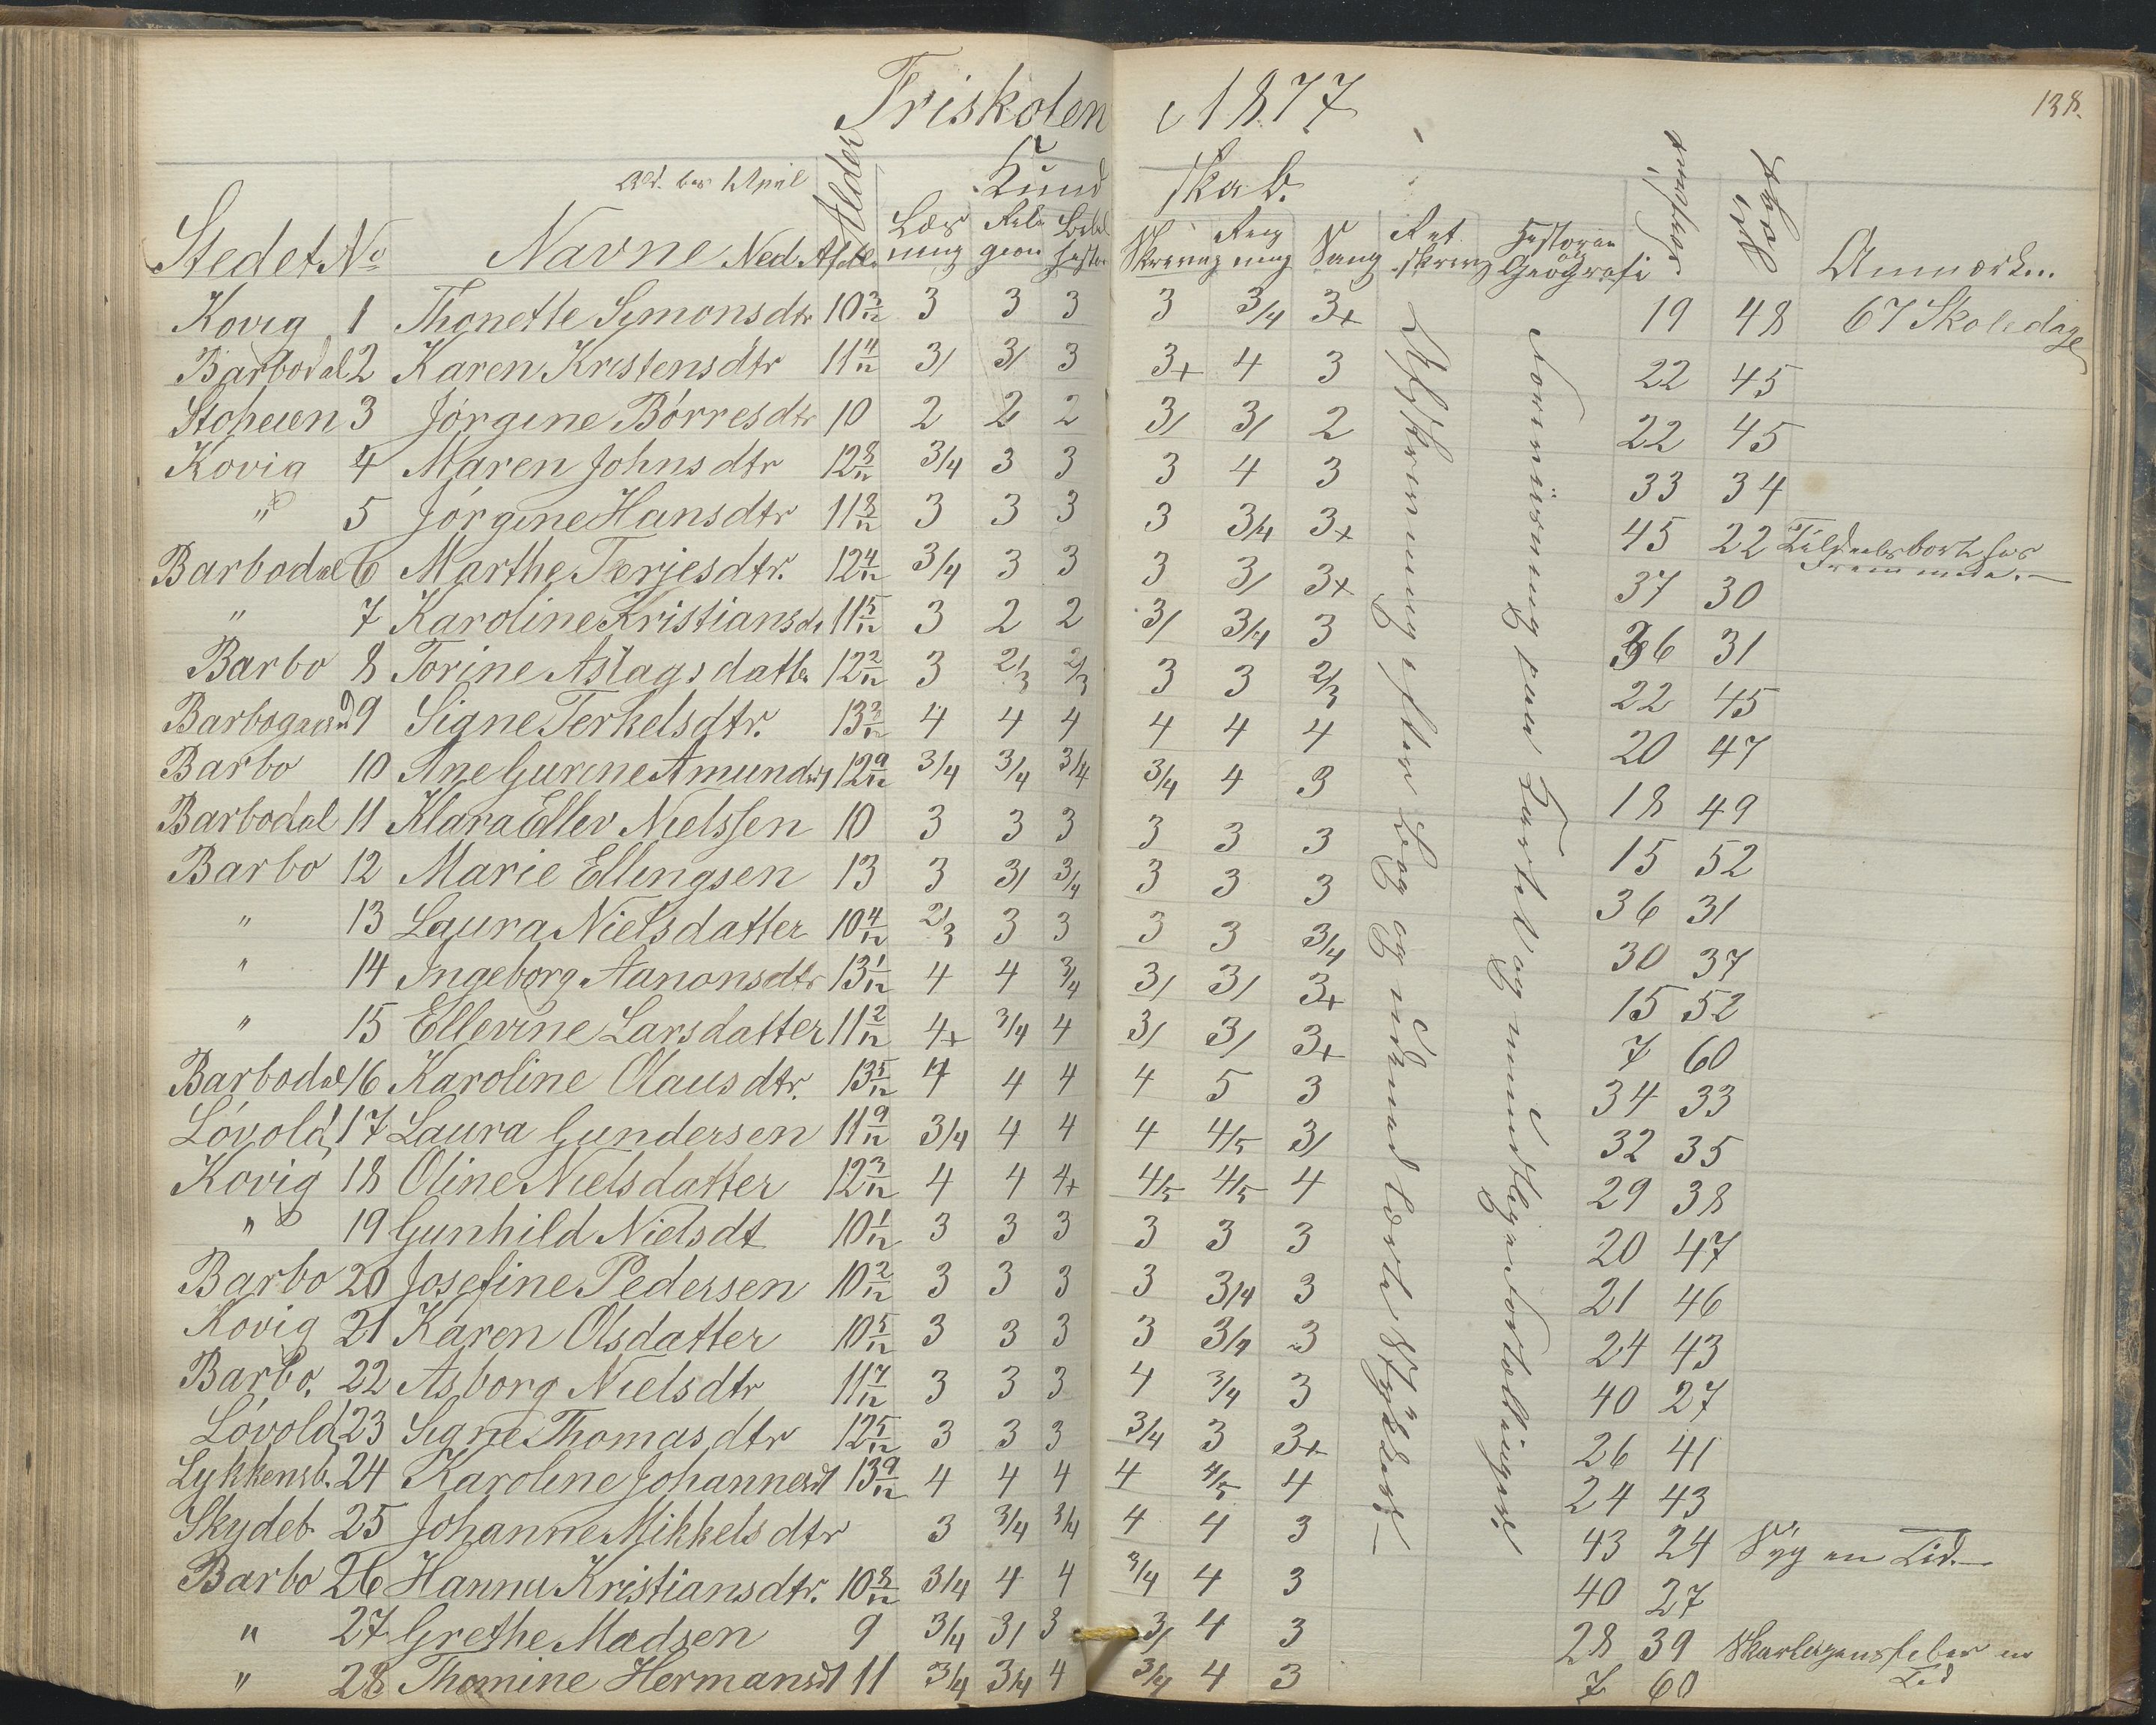 Friskolen i 1877
138.
Kund skab.
Stedet No Navne Ned. Afdel. Alder Læs ning Reli gion Bibel histor Skrivning Reg ning Sang Ret skrivn Historie og Geografi forsømt søgt Skol. Anmærkn.
Kovig 1 Thonette Simonsdtr 10 3/12 3 3 3 3 3/4 3+ 19 48 67 Skoledage
Barbodal 2 Karen Kristensdtr 11 4/12 3/ 3/ 3 3+ 4 3 22 45
Stoheien 3 Jórgine Bórresdtr 10 2 2 2 3/ 3/ 2 22 45
Kovig 4 Maren Johnsdtr 12 8/12 3/4 3 3 3 4 3 33 34
" 5 Jórgine Hansdtr 11 8/12 3 3 3 3 3/4 3+ 45 22 Tildeels borte hos Fremmede.
Barbodal 6 Marthe Terjesdtr. 12 4/12 3/4 3 3 3 3/ 3+ 37 30
" 7 Karoline Kristiansdt 11 5/12 3 2 2 3/ 3/4 3 36 31
Barbo 8 Torine Aslagsdatte 12 2/12 3 2/3 2/3 3 3 2/3 22 45
Barbogaard 9 Signe Terkelsdtr. 13 3/12 4 4 4 4 4 4 20 47
Barbo 10 Ane Gurine Amundsd 12 9/12 3/4 3/4 3/4 3/4 4 3 18 49
Barbodal 11 Klara Ellev Nielssen 10 3 3 3 3 3 3 15 52
Barbo 12 Marie Ellingsen 13 3 3/ 3/4 3 3 3 36 31
" 13 Laura Nielsdatter 10 4/12 2/3 3 3 3 3 3/4 30 37
" 14 Ingeborg Aanonsdtr 13 1/12 4 4 3/4 3/ 3/ 3+ 15 52
" 15 Ellevine Larsdatter 11 2/12 4+ 3/4 4 3/ 3/ 3+ 7 60
Barbodal 16 Karoline Olausdtr. 13 5/12 4 4 4 4 5 3 34 33
Lóvold 17 Laura Gundersen 11 9/12 3/4 4 4 4 4/5 3/ 32 35
Kovig 18 Oline Nielsdatter 12 3/12 4 4 4+ 4/5 4/5 4 29 38
" 19 Gunhild Nielsdt 10 1/12 3 3 3 3 3 3 20 47
Barbo 20 Josefine Pedersen 10 2/12 3 3 3 3 3/4 3 21 46
Kovig 21 Karen Olsdatter 10 5/12 3 3 3 3 3/4 3 24 43
Barbo. 22 Asborg Nielsdtr 11 7/12 3 3 3 4 3/4 3 40 27
Lóvold 23 Signe Thomasdtr 12 5/12 3 3 3 3/4 3 3+ 26 41
Lykkensb. 24 Karoline Johannesdt 13 9/12 4 4 4 4 4/5 4 24 43
Skydeb. 25 Johanne Mikkelsdtr 3 3/4 3/4 4 4 3 43 24 Syg en Tid.
Barbo 26 Hanna Kristiansdtr. 10 8/12 3/4 4 4 3/4 4 3 40 27
" 27 Grethe Madsen 9 3/4 3/ 3 3/ 4 3 28 39 Skarlagensfeber en Tid
" 28 Thomine Hermansdt 11 3/4 3/4 4 3/4 4 3 7 60
Afskrivning efter Bog og udenad lærte Stykker.
og mundtlige Fortællinger.